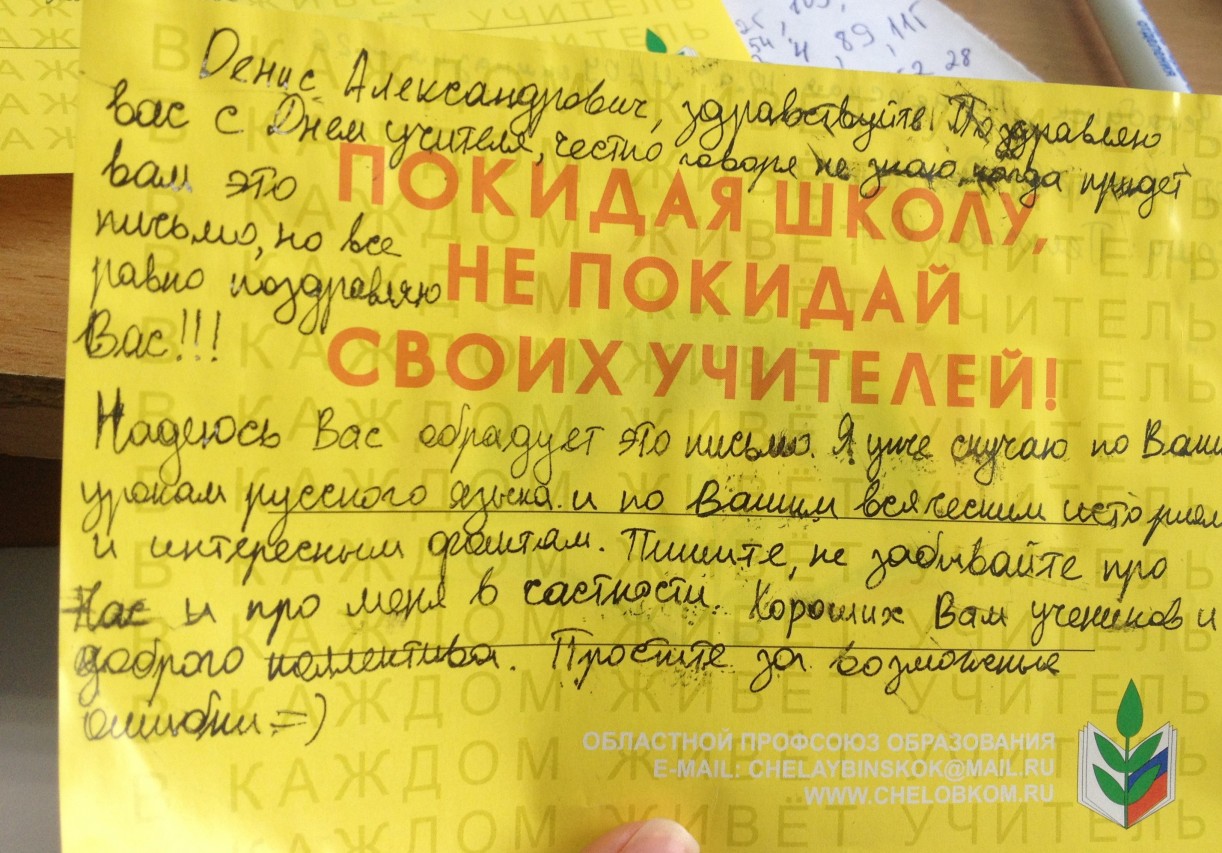 Денис Александрович, здравствуйте! Поздравляю
вас с Днем учителя, честно говоря не знаю, когда придет
вам это
письмо, но все
равно поздравляю
Вас!!!
ПОКИДАЯ ШКОЛУ,
НЕ ПОКИДАЙ
СВОИХ УЧИТЕЛЕЙ!
Надеюсь Вас обрадует это письмо. Я уже скучаю по Вашим
урокам русского языка и по Вашим всяческим историям
и интересным фактам. Пишите, не забывайте про
Нас и про меня в частности. Хороших Вам учеников и
доброго коллектива. Простите за возможные
ошибки =)
ОБЛАСТНОЙ ПРОФСОЮЗ ОБРАЗОВАНИЯ
E-MAIL: CHELAYBINSKOK@MAIL.RU
WWW.CHELOBKOM.RU
В КАЖДОМ ЖИВЁТ УЧИТЕЛЬ
89, 115
28